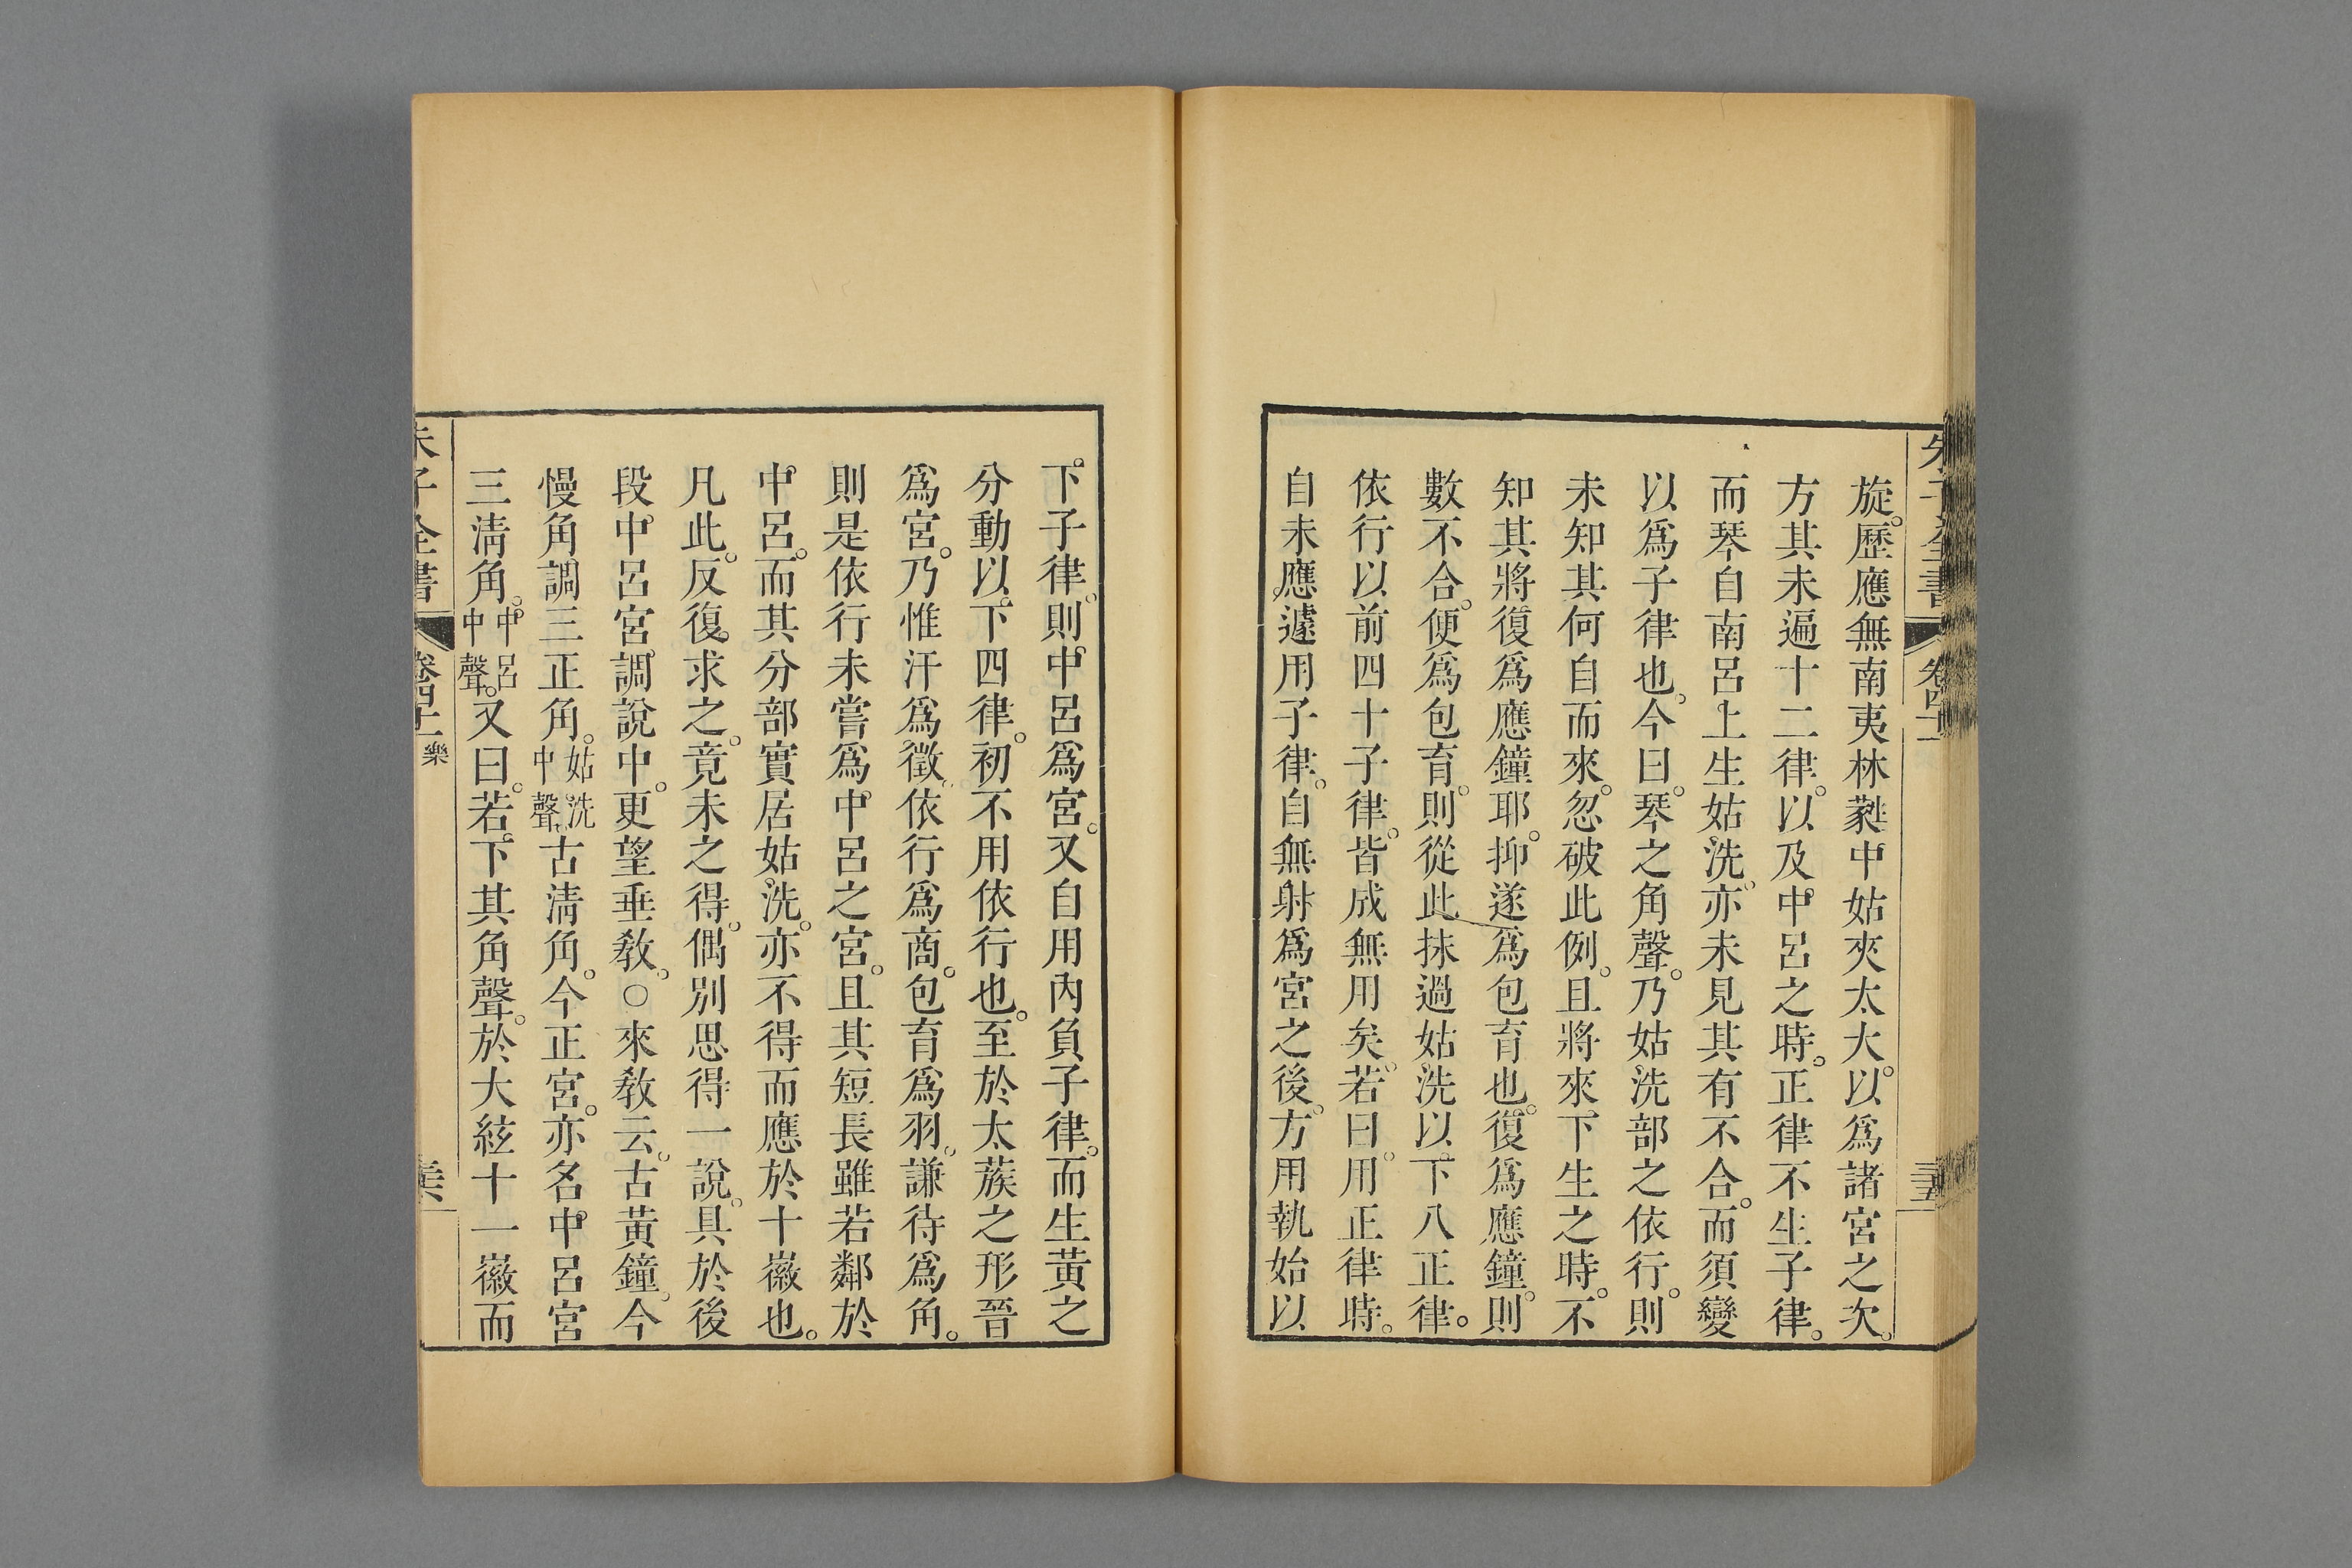 旋。歷應無南夷林蕤中姑夾太大。以爲諸宮之次。
方其未遍十二律。以及中呂之時。正律不生子律。
而琴自南呂上生姑洗。亦未見其有不合。而須變
以爲子律也。今曰。琴之角聲。乃姑洗部之依行。則
未知其何自而來。忽破此例。且將來下生之時。不
知其將復爲應鐘耶。抑遂爲包育也。復爲應鐘。則
數不合。便爲包育。則從此抹過姑洗以下八正律。
依行以前四十子律。皆成無用矣。若曰。用正律時。
自未應遽用子律。自無射爲宮之後。方用執始以
下子律。則中呂爲宮。又自用內負子律。而生黃之
分動以下四律。初不用依行也。至於太蔟之形晉
爲宮。乃惟汗爲徵。依行爲商。包育爲羽。謙待爲角。
則是依行未嘗爲中呂之宮。且其短長雖若鄰於
中呂。而其分部實居姑洗。亦不得而應於十徽也。
凡此。反復求之。竟未之得。偶別思得一說。具於後
段中呂宮調說中。更望垂教。○來教云。古黃鐘。今
慢角調三正角。姑洗中聲。古清角。今正宮。亦名中呂宮
三清角。中呂中聲。又曰。若下其角聲。於大絃十一徽而
子全書 樂